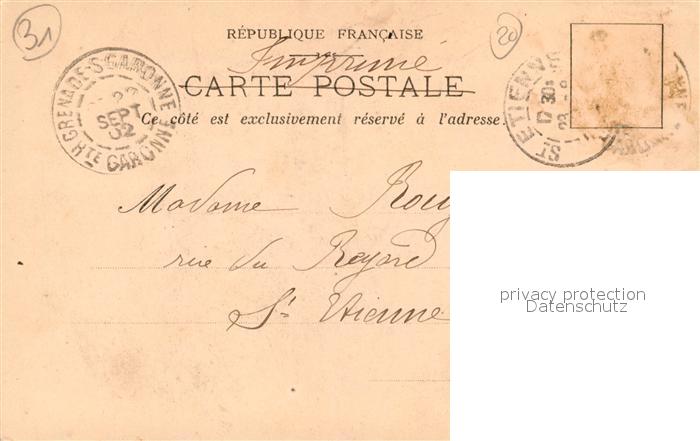 31
20
RÉPUBLIQUE FRANÇAISE
Imprimé
CARTE POSTALE
Ce côté est exclusivement réservé à l'adresse.
GRENADE-S-GARONNE
22
SEPT
02
HTE GARONNE
ST ETIENNE
17 30
23
Madame
rue du
St Etienne
privacy protection
Datenschutz